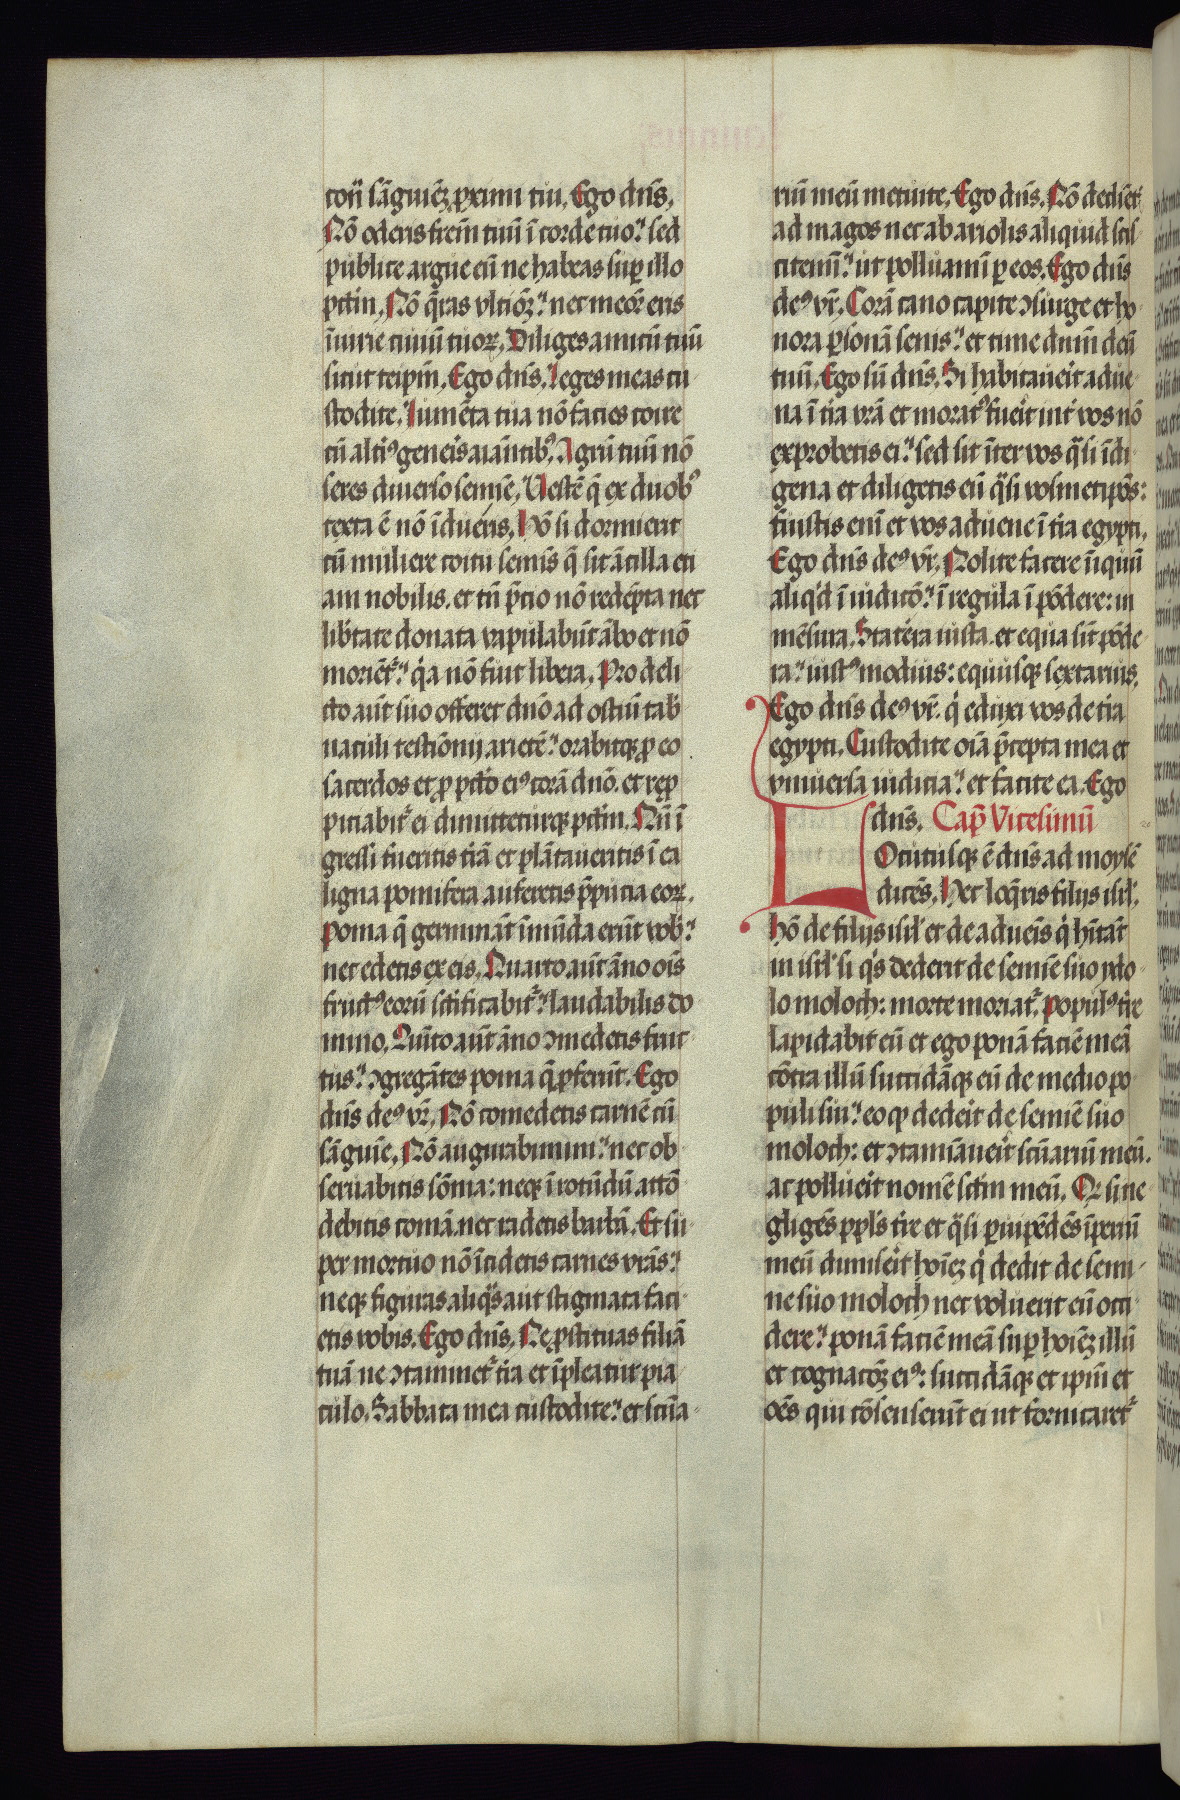 cōt̄ sāguīez ꝓximi tui. Ego dn̄s.
Nō oderis frem̄ tuū ī corde tuo: sed
publice argue eū ne habeas sup̱ illo
pctm̄. Nō q̄ras vltiōez: nec meōr eris
īiurie ciuiū tuoꝝ. Diliges amicū tuū
sicut teip̄m. Ego dn̄s. leges meas cu
stodite. Iumēta tua nō facies coire
cū altiꝰ gen̄eis aīantibꝰ. Agrū tuū nō
seres diuerso semīe. Vestē q̄ ex duobꝰ
texta ē nō īdueris. Hō si dormierit
cū muliere coitu semīs q̄ sit ācilla eti
am nobilis. et tn̄ p̄cio nō redēpta nec
lib̄tate donata vapulabūt ābo et nō
moriēt᷑: q̓a nō fuit libera. Pro deli
cto aūt suo offeret dn̄o ad ostiū tab̓
naculi testiōnij arietē: orabitqꝫ ꝓ eo
sacerdos et ꝓ pctō eiꝰ corā dn̄o. et rep̱
piciabit᷑ ei dimitteturqꝫ pctm̄. Cū ī
gressi fueritis t̄ram et plātaueritis ī ea
ligna pomifera. auferetis p̄pucia eoꝝ.
poma q̄ germināt īmūda erūt vob̓:
nec edetis ex eis. Quarto aūt āno oīs
fructꝰ eorū sctificabit᷑: laudabilis do
mino. Quīto aūt āno ꝯmedetis fruc
tus: ꝯgregātes poma q̄ ꝓferūt. Ego
dn̄s deꝰ vr̄. Nō comedetis carnē cū
sāguīe. Nō augurabimini: nec ob
seruabitis sōmia: neqꝫ ī rotūdū attō
debitis comā. nec radetis barbā. Et su
per mortuo nō īcidetis carnes vrās:
neqꝫ figuras aliq̄s aut stigmata faci
etis vobis. Ego dn̄s. Ne ꝓstituas filiā
tuā ne ꝯtaminet᷑ t̄ra et īpleatur pia
culo. Sabbata mea custodite: et scūa
riū meū metuite. Ego dn̄s. Nō decliet᷑
ad magos nec ab ariolis aliquid scis
citemī: ut polluamī ꝑ eos. Ego dn̄s
deꝰ vr̄. Corā cano capite ꝯsurge et ho
nora ꝑsonā senis: et time dn̄m deū
tuū. Ego sū dn̄s. Si habitauerit adue
na ī t̄ra vrā et moratꝰ fueit int̓ vos nō
exprobetis ei: sed sit īter vos q̄si īdi
gena et diligetis eū q̄si vosmetip̄os:
fuistis enī et vos aduene ī t̄ra egypti.
Ego dn̄s deꝰ vr̄. Nolite facere īiquū
aliq̓d ī iudicō: ī regula ī pōdere: in
mēsura. Statera iusta. et equa sūt pōde
ra: iustꝰ modius: equusqꝫ sextarius.
Ego dn̄s deꝰ vr̄. q̓ eduxi vos de t̄ra
egypti. Custodite oīa p̄cepta mea et
vniuersa iudicia: et facite ea. Ego
dn̄s. Cap̄ Vicesimū
LOcutusqꝫ ē dn̄s ad moysē
dicēs. Hec loq̄ris filijs isrl̓.
Hō de filijs isrl̓ et de adueīs q̓ hītāt
in isrl̓ si q̓s dederit de semīe suo ydo
lo moloch: morte moriat᷑. populꝰ t̄re
lapidabit eū et ego ponā faciē meā
cōtra illū succidāqꝫ eū de medio po
puli sui: eo ꝙ dedeit de semīe suo
moloch: et ꝯtamīaueit scūariū meū.
ac pollueit nomē sctm̄ meū. Qꝫ si ne
gligēs ppl̓s t̄re et q̄si ꝑuipēdēs īperiū
meū dimiseit hoīez q̓ dedit de semi
ne suo moloch nec voluerit eū occi
dere: ponā faciē meā sup̱ hoīez illū
et cognacōez eiꝰ: succidāqꝫ et ip̄m et
oēs qui cōsenserūt ei ut fornicaret᷑